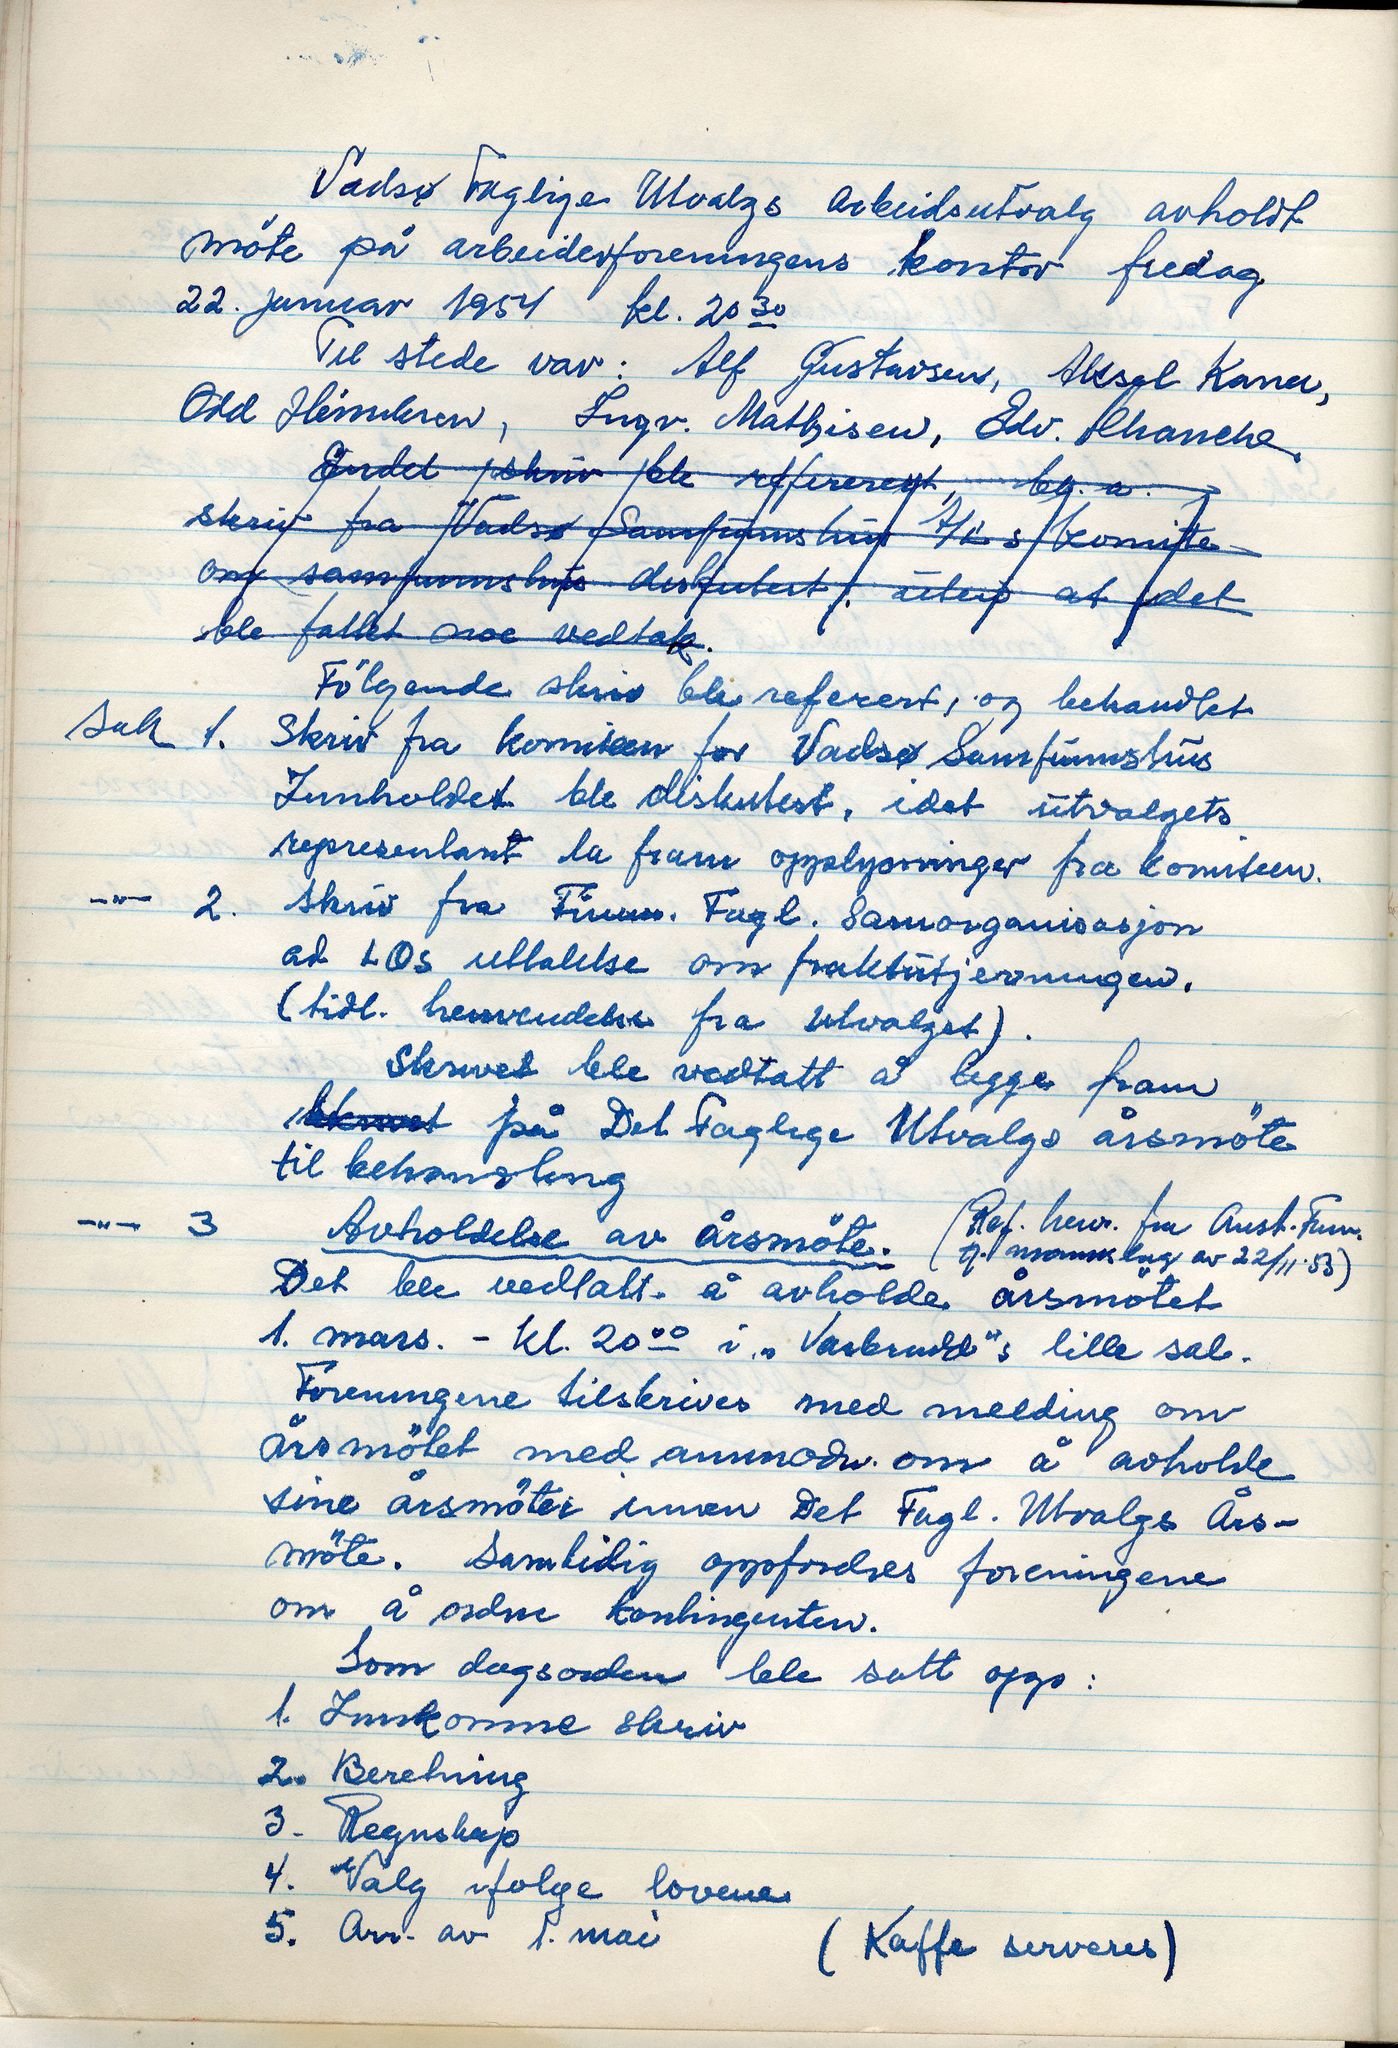 Vadsø Faglige Utvalgs arbeidsutvalg avholdt
möte på arbeiderforeningens kontor fredag
22. januar 1954 kl. 20 30
Til stede var: Alf Gustavsen, Aksel Kana,
Odd Ingv. Mathisen, Edv. Khanche.
Endel skriv ble referert, bl. a.
skriv fra Vadsø Samfunnshus A/L s komite
og samfunnshus diskutert, uten at det
ble fattet noe vedtak.
Fölgende skriv ble referert, og behandlet
Sak 1. Skriv fra komiteen for Vadsø Samfunnshus
Innholdet ble diskutert, idet utvalgets
representant la fram opplysninger fra komiteen.
-"- 2. Skriv fra Finnm. Fagl. Samorganisasjon
ad LOs uttalelse om fraktutjevningen.
(tidl. henvendelse fra utvalget).
Skrivet ble vedtatt å legge fram
skrivet på Det Faglige Utvalgs årsmöte
til behandling
-"- 3 Avholdelse av årsmöte. (Ref. henv. fra Aust-Finnm.
manns lag av 22/11.53)
Det ble vedtatt å avholde årsmötet
1. mars. - kl. 20 00 i „Varbrudd"s lille sal.
Foreningene tilskrives med melding om
årsmötet med anmodn. om å avholde
sine årsmöter innen Det Fagl. Utvalgs Års-
möte. Samtidig oppfordres foreningene
om å ordne kontingenten.
Som dagsorden ble satt opp:
1. Innkomne skriv
2. Beretning
3. Regnskap
4. Valg ifølge lovene
5. Arr. av 1. mai (Kaffe serveres)